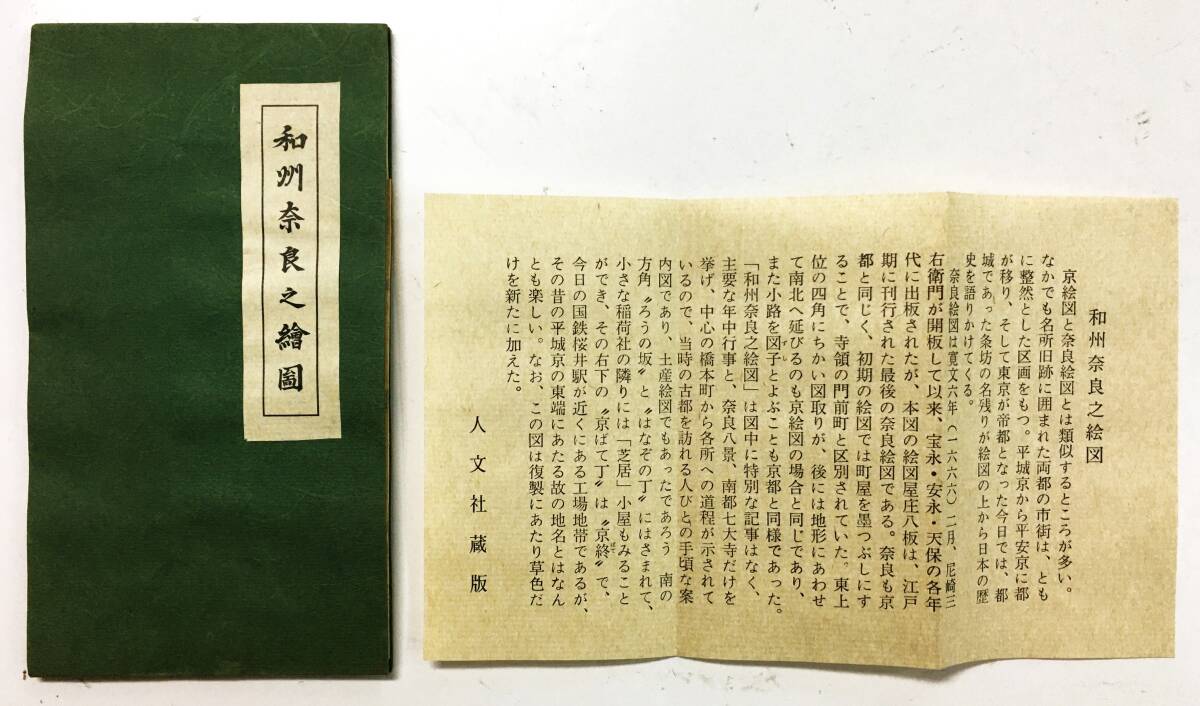 和州奈良之繪圖
和州奈良之絵図
京絵図と奈良絵図とは類似するところが多い。
なかでも名所旧跡に囲まれた両都の市街は、とも
に整然とした区画をもつ。平城京から平安京に都
が移り、そして東京が帝都となった今日では、都
城であった条坊の名残りが絵図の上から日本の歴
史を語りかけてくる。
奈良絵図は寛文六年(一六六六)二月、尼崎三
右衛門が開板して以来、宝永・安永・天保の各年
代に出板されたが、本図の絵図屋庄八板は、江戸
期に刊行された最後の奈良絵図である。奈良も京
都と同じく、初期の絵図では町屋を墨つぶしにす
ることで、寺領の門前町と区別されていた。東上
位の四角にちかい図取りが、後には地形にあわせ
て南北へ延びるのも京絵図の場合と同じであり、
また小路を図子とよぶことも京都と同様であった。
「和州奈良之絵図」は図中に特別な記事はなく、
主要な年中行事と、奈良八景、南都七大寺だけを
挙げ、中心の橋本町から各所への道程が示されて
いるので、当時の古都を訪れる人びとの手頃な案
内図であり、土産絵図でもあったであろう 南の
方角〝ろうの坂〟と〝はなぞの丁〟にはさまれて、
小さな稲荷社の隣りには「芝居」小屋もみること
ができ、その右下の〝京ばて丁〟は〝京終〟で、
今日の国鉄桜井駅が近くにある工場地帯であるが、
その昔の平城京の東端にあたる故の地名とはなん
とも楽しい。なお、この図は復製にあたり草色だ
けを新たに加えた。
人文社蔵版